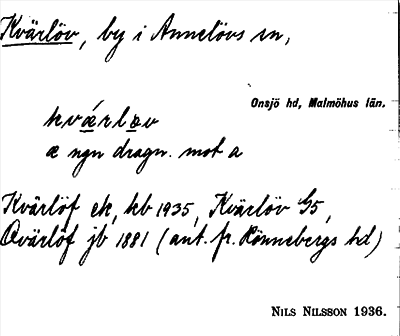 Kvärlöv, by i Annelövs sn,
Onsjö hd, Malmöhus län.
kvǽrlæv
æ ngn dragn. mot a
Kvärlöf ek, kb 1935, Kvärlöv G5,
Qvärlöf jb 1881 (ant. fr. Rönnebergs hd)
NILS NILSSON 1936.